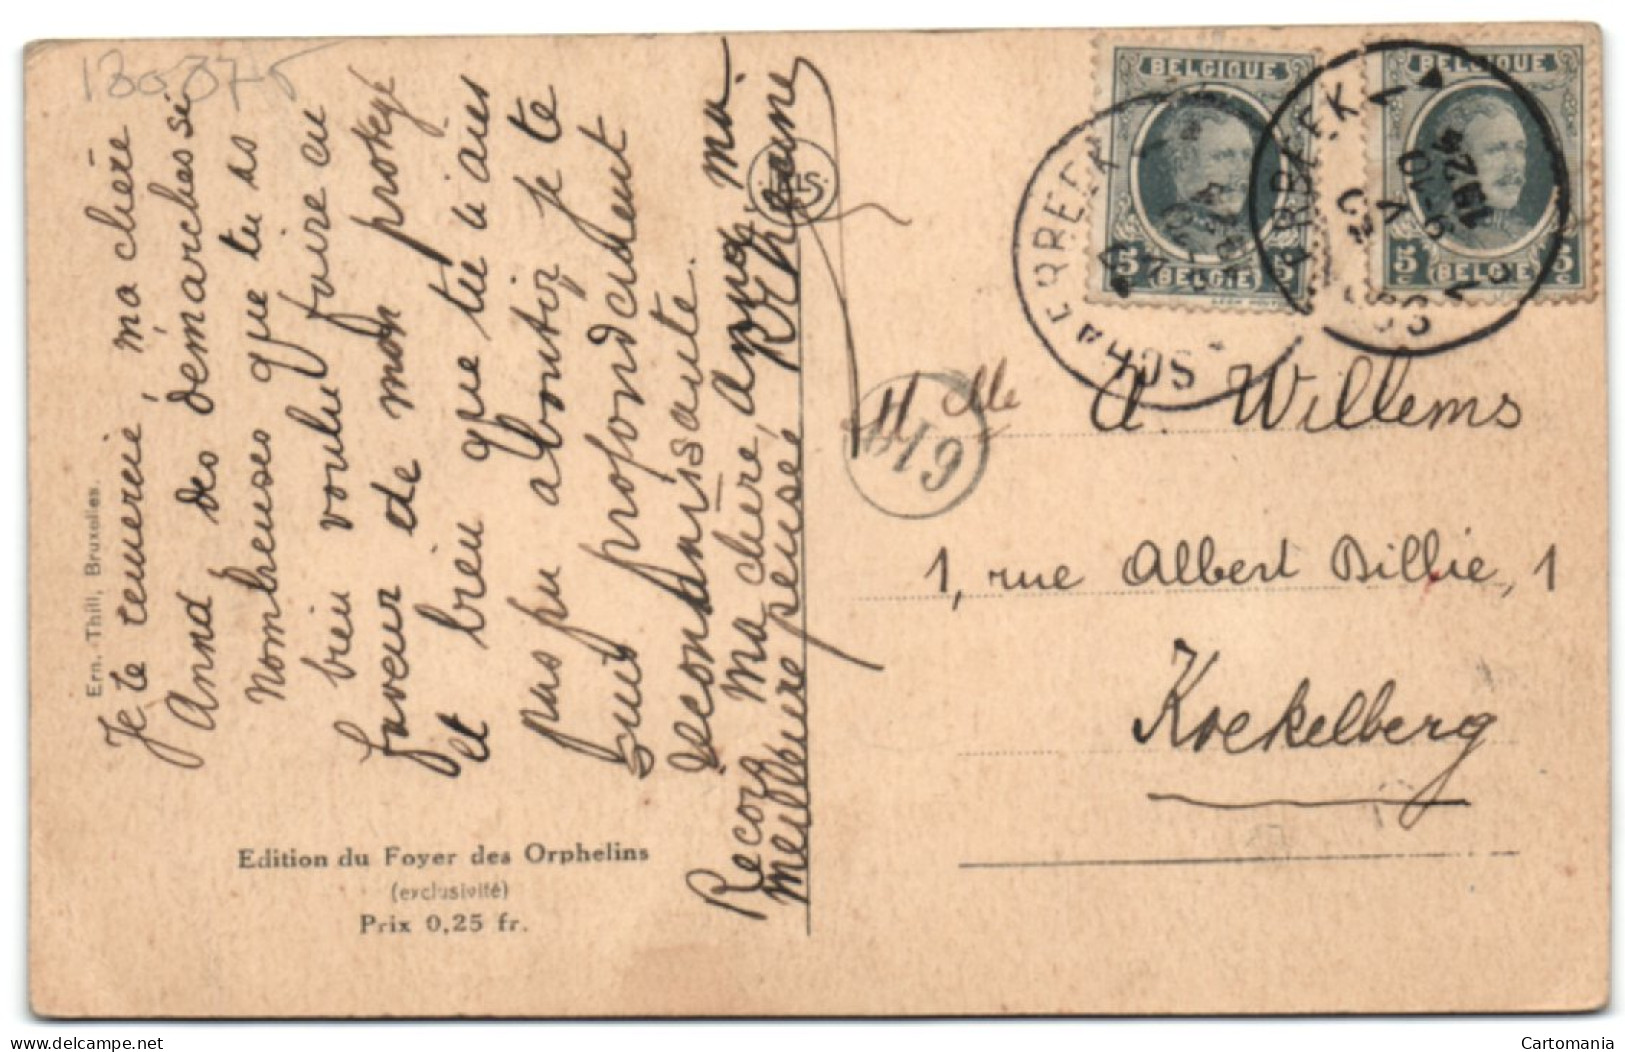 130375
Je te remercie, ma chère
Anna des démarches si
nombreuses que tu as
bien voulu faire en
faveur de mon protégé
et bien que tu n'aies
pas pu aboutir je te
suis profondément
reconnaissante.
Reçois, ma chère Anna, ma
meilleure pensée,
Ern. Thill, Bruxelles.
Edition du Foyer des Orphelins
(exclusivité)
Prix 0,25 fr.
BELGIQUE
5 c
BELGIE
BELGIQUE
5 c
BELGIE
SCHAERBEEK
SCHAERBEEK 1
9-10
V
1924
619
Melle A. Willems
1, rue Albert Dillie, 1
Koekelberg
delcampe.net
Cartomania